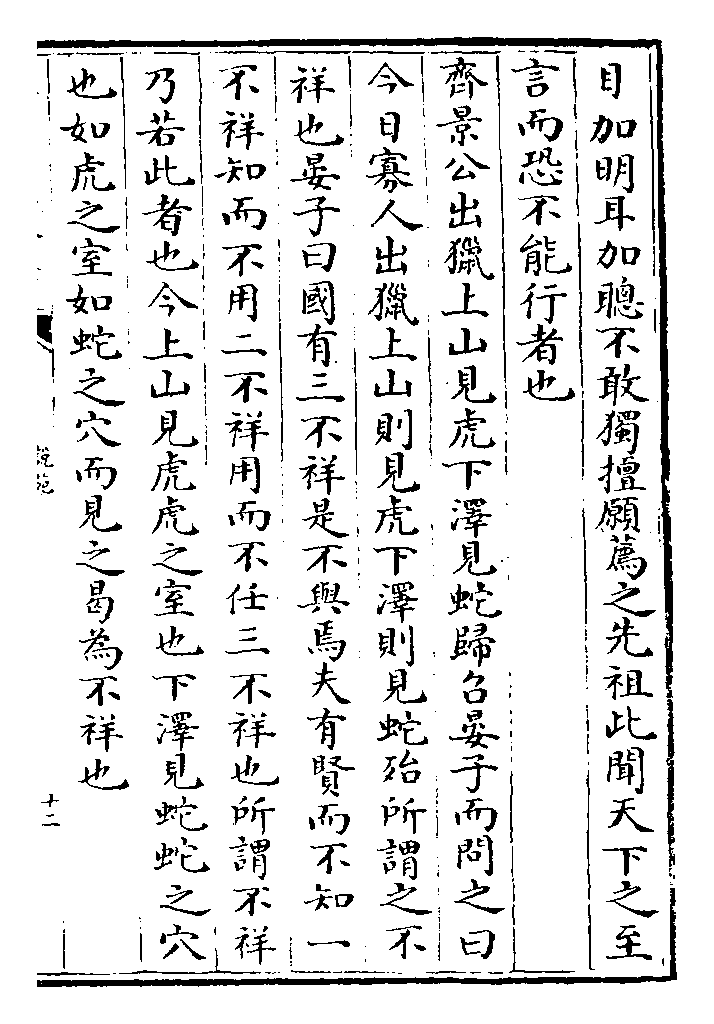 目加明耳加聰不敢獨擅願薦之先祖此聞天下之至
言而恐不能行者也
齊景公出獵上山見虎下澤見蛇歸召晏子而問之曰
今日寡人出獵上山則見虎下澤則見蛇殆所謂之不
祥也晏子曰國有三不祥是不與焉夫有賢而不知一
不祥知而不用二不祥用而不任三不祥也所謂不祥
乃若此者也今上山見虎虎之室也下澤見蛇蛇之穴
也如虎之室如蛇之穴而見之曷為不祥也
說苑
十二